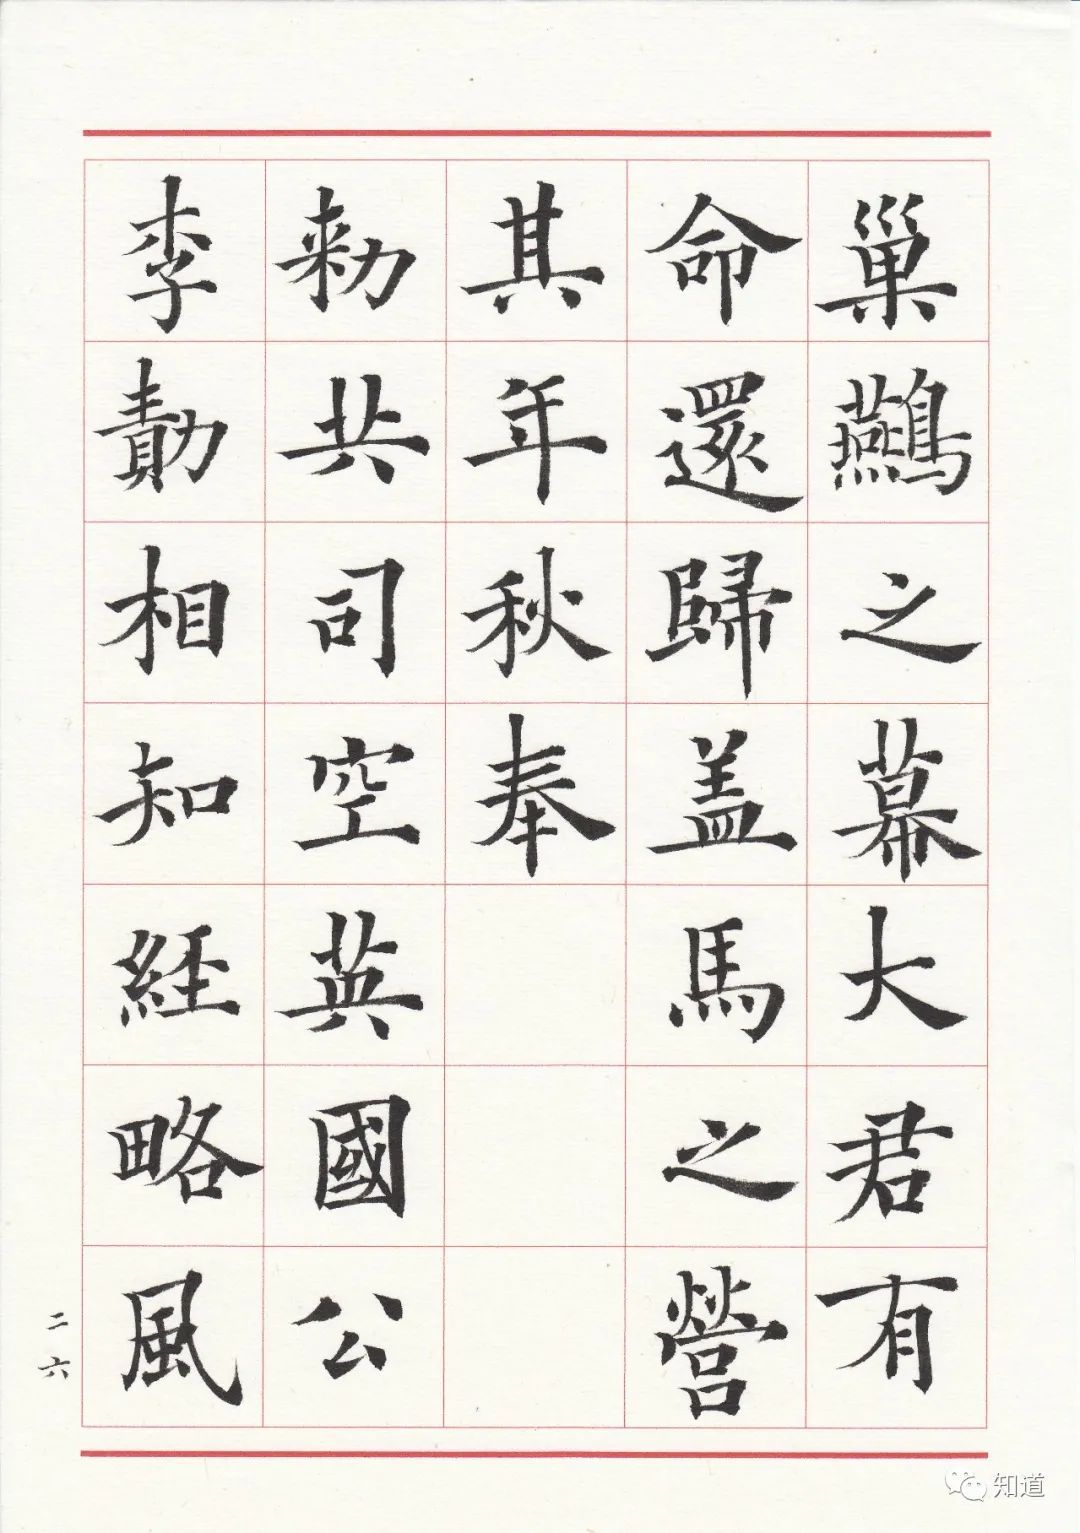 巢鷰之幕大君有
命還歸盖馬之營
其年秋奉
勑共司空英國公
李勣相知經略風
二六
知道